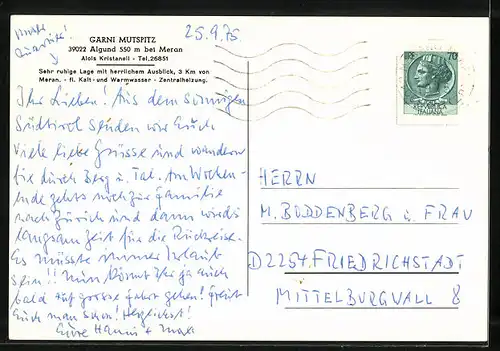 25.9.75.
GARNI MUTSPITZ
39022 Algund 550 m bei Meran
Alois Kristanell - Tel. 26851
Sehr ruhige Lage mit herrlichem Ausblick, 3 Km von
Meran. - fl. Kalt- und Warmwasser - Zentralheizung.
Ihr Lieben! Aus dem sonnigen
Südtirol senden wir Euch
viele liebe Grüsse und wandern
für durch Berg u. Tal. Am Wochen-
ende gehts noch zur Familie
nach Zürich und dann wird's
langsam Zeit für die Rückreise.
Es müsste immer Urlaub
sein!! Nun könnt Ihr ja auch
bald auf grosse Fahrt gehen! Freut
Euch man schon! Herzlichst!
Eure Hanni + Max
70
HERRN
M. BUDDENBERG u. FRAU
D2254 FRIEDRICHSTADT
MITTELBURGWALL 8